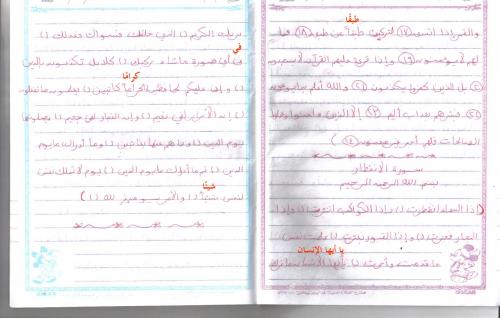 طبقًا
والقمر إذا اتسق (١٧) لتركبن طبقا عن طبق (١٨) فما
لهم لا يؤمنون (١٩) وإذا قرئ عليهم القرآن لا يسجدون
بل الذين كفروا يكذبون () والله أعلم بما يوعون
() فبشرهم بعذاب أليم () إلا الذين آمنوا وعملوا
الصالحات فلهم أجر غير ممنون ()
سورة الانفطار
بسم الله الرحمن الرحيم
إذا السماء انفطرت () وإذا الكواكب انتثرت () وإذا
البحار فجرت () وإذا القبور بعثرت () علمت نفس
يا أيها الإنسان
ما قدمت وأخرت () يأيها الإنسان ما غرك
بربك الكريم () الذي خلقك فسواك فعدلك ()
في
في أي صورة ما شاء ركبك () كلا بل تكذبون بالدين
كرامًا
() وإن عليكم لحافظين () كراما كاتبين () يعلمون ما تفعلون
() إن الأبرار لفي نعيم () وإن الفجار لفي جحيم () يصلونها
يوم الدين () وما هم عنها بغائبين () وما أدراك ما يوم
الدين () ثم ما أدراك ما يوم الدين () يوم لا تملك نفس
شيئًا
لنفس شيئا () والأمر يومئذ لله ()